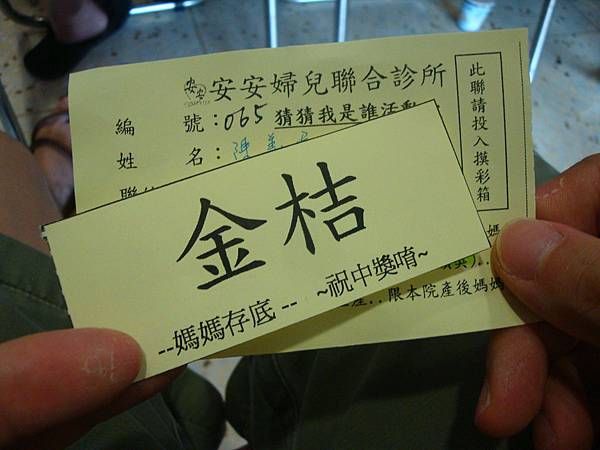 安安婦兒聯合診所
編號：065 猜猜我是誰活動
姓名：陳美
此聯請投入摸彩箱
金桔
--媽媽存底-- ~祝中獎唷~
媽
限本院產後媽媽